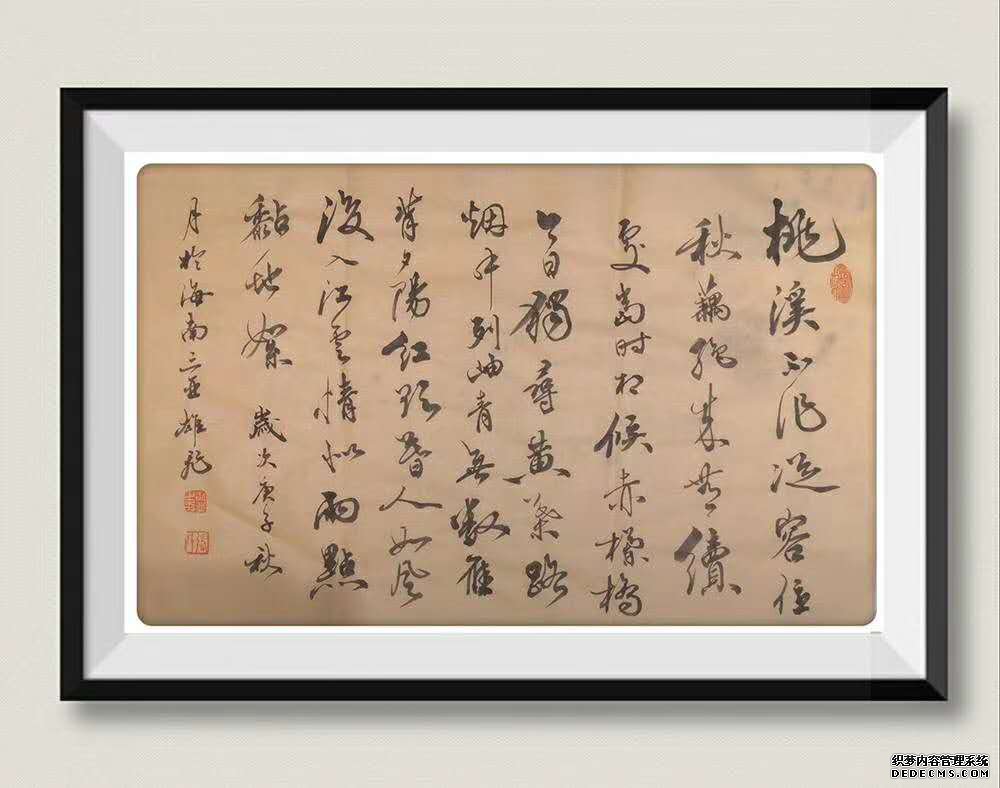 桃溪不作從容住
秋藕絕來無續
處當時相候赤欄橋
今日獨尋黃葉路
烟中列岫青無數雁
背夕陽紅欲暮人如風
後入江雲情似雨點
黏地絮 歲次庚子秋
月於海南三亞 雄
织梦内容管理系统
DEDECMS.COM